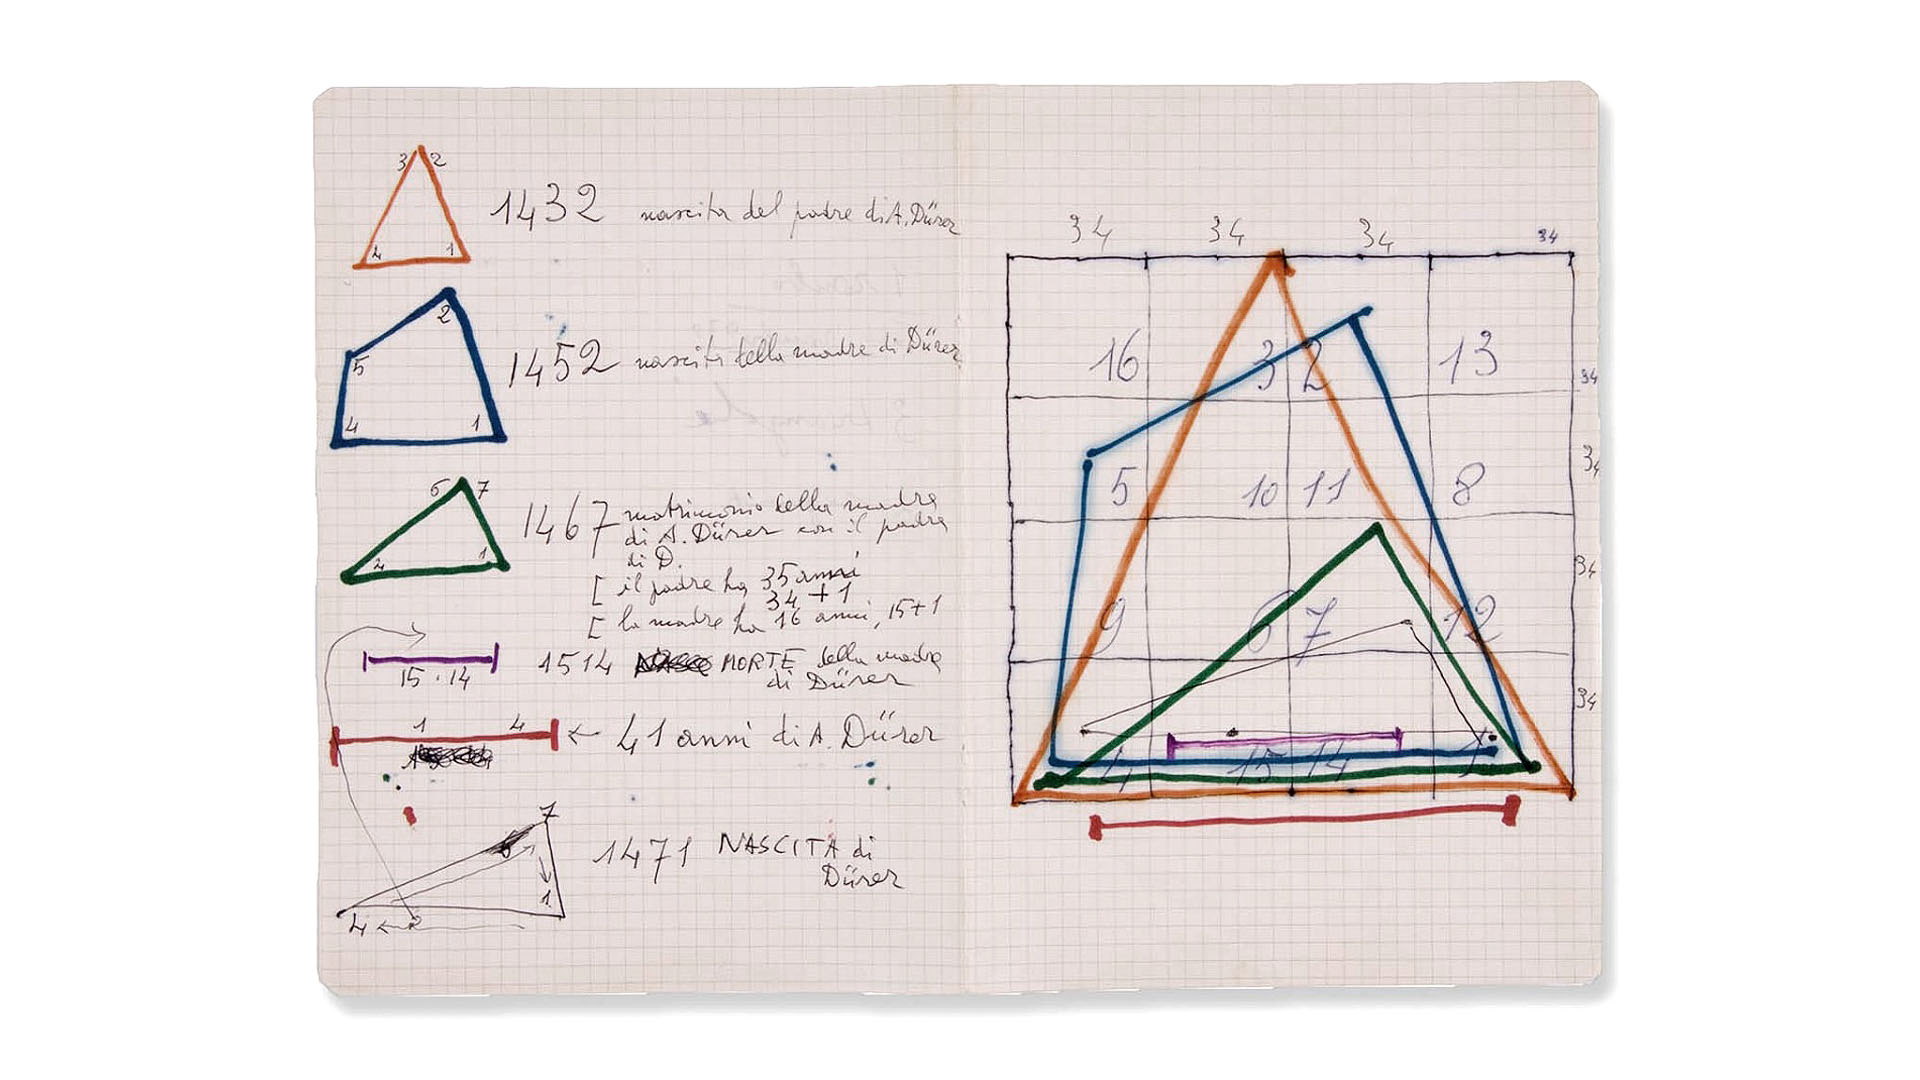 3 2
4 1
1432 nascita del padre di A. Dürer
2
5
4 1
1452 nascita della madre di Dürer
6 7
4 1
1467 matrimonio della madre
di A. Dürer con il padre
di D.
[ il padre ha 35 anni
34 + 1
[ la madre ha 16 anni, 15+1
15 · 14
1514 MORTE della madre
di Dürer
1 4
← 41 anni di A. Dürer
7
6
1
4 ←
1471 NASCITA di
Dürer
34 34 34 34
16 3 2 13 34
5 10 11 8 34
9 6 7 12 34
4 15 14 1 34